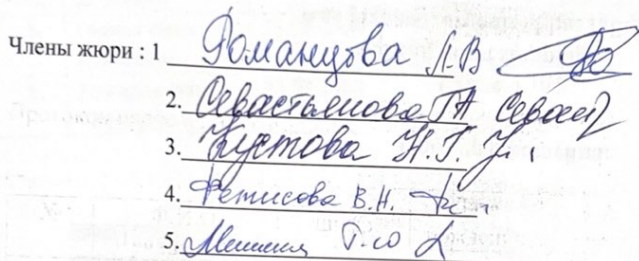 Члены жюри : 1 Романцова Л.В
2. Севастьянова Г.А Севаст
3. Кустова Н.Г.
4. Фетисова В.Н.
5. Г.Ю